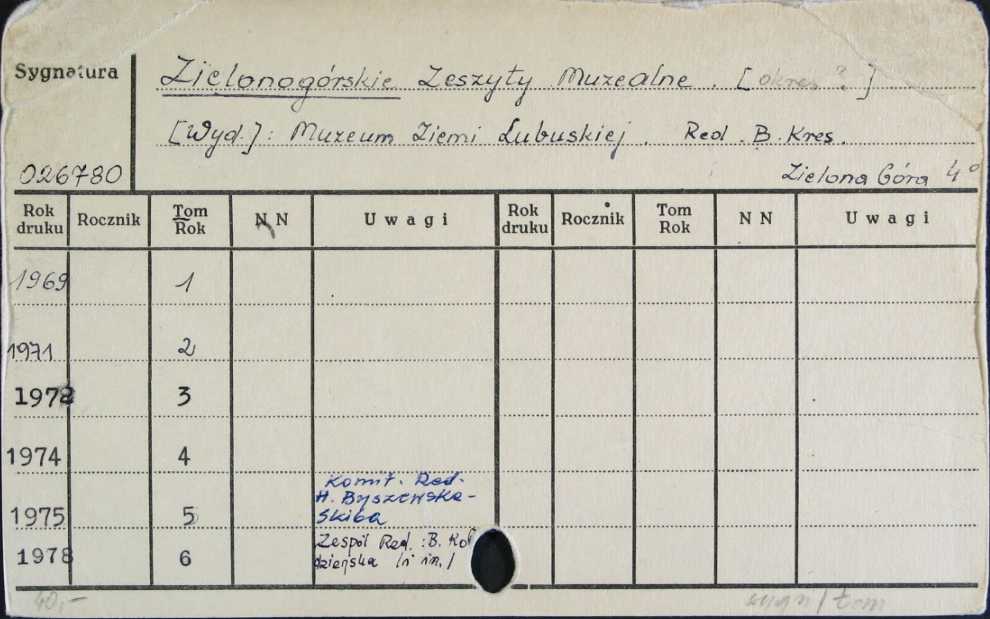 Sygnatura
Zielonogórskie Zeszyty Muzealne. [okres?]
[Wyd.]: Muzeum Ziemi Lubuskiej. Red. B. Kres.
026780
Zielona Góra 4°
Rok druku Rocznik Tom Rok NN Uwagi Rok druku Rocznik Tom Rok NN Uwagi
1969 1
1971 2
1972 3
1974 4
Komit. Red.
H. Byszewska-
1975 5 Skiba
Zespół Red.: B. Koł
1978 6 dziejska /i in./
40,-
sygn/tom